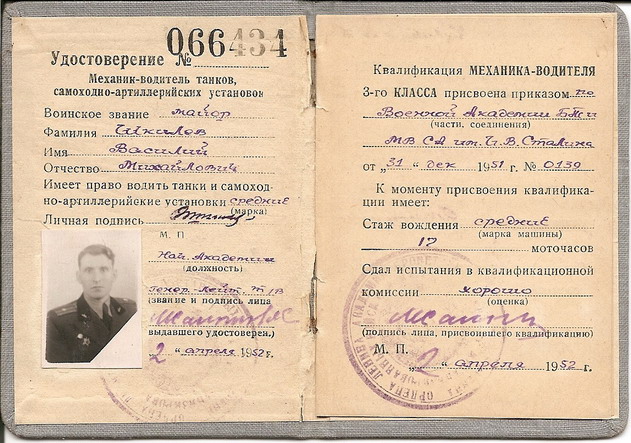 Удостоверение № 066434
Механик-водитель танков,
самоходно-артиллерийских установок
Воинское звание майор
Фамилия Шкилев
Имя Василий
Отчество Михайлович
Имеет право водить танки и самоход-
но-артиллерийские установки средние
(марка)
Личная подпись
М. П.
Нач. Академии
(должность)
Генер.-лейт. т/в
(звание и подпись лица
выдавшего удостоверен.)
2 " апреля 1952 г.
Квалификация МЕХАНИКА-ВОДИТЕЛЯ
3-го КЛАССА присвоена приказом по
Военной Академии БТ и
(части, соединения)
МВ СА им. И. В. Сталина
от „31 " дек 1951 г. № 0139
К моменту присвоения квалифика-
ции имеет:
Стаж вождения средние
(марка машины)
17 моточасов
Сдал испытания в квалификационной
комиссии хорошо
(оценка)
(подпись лица, присвоившего квалификацию)
М. П. „2 " апреля 1952 г.